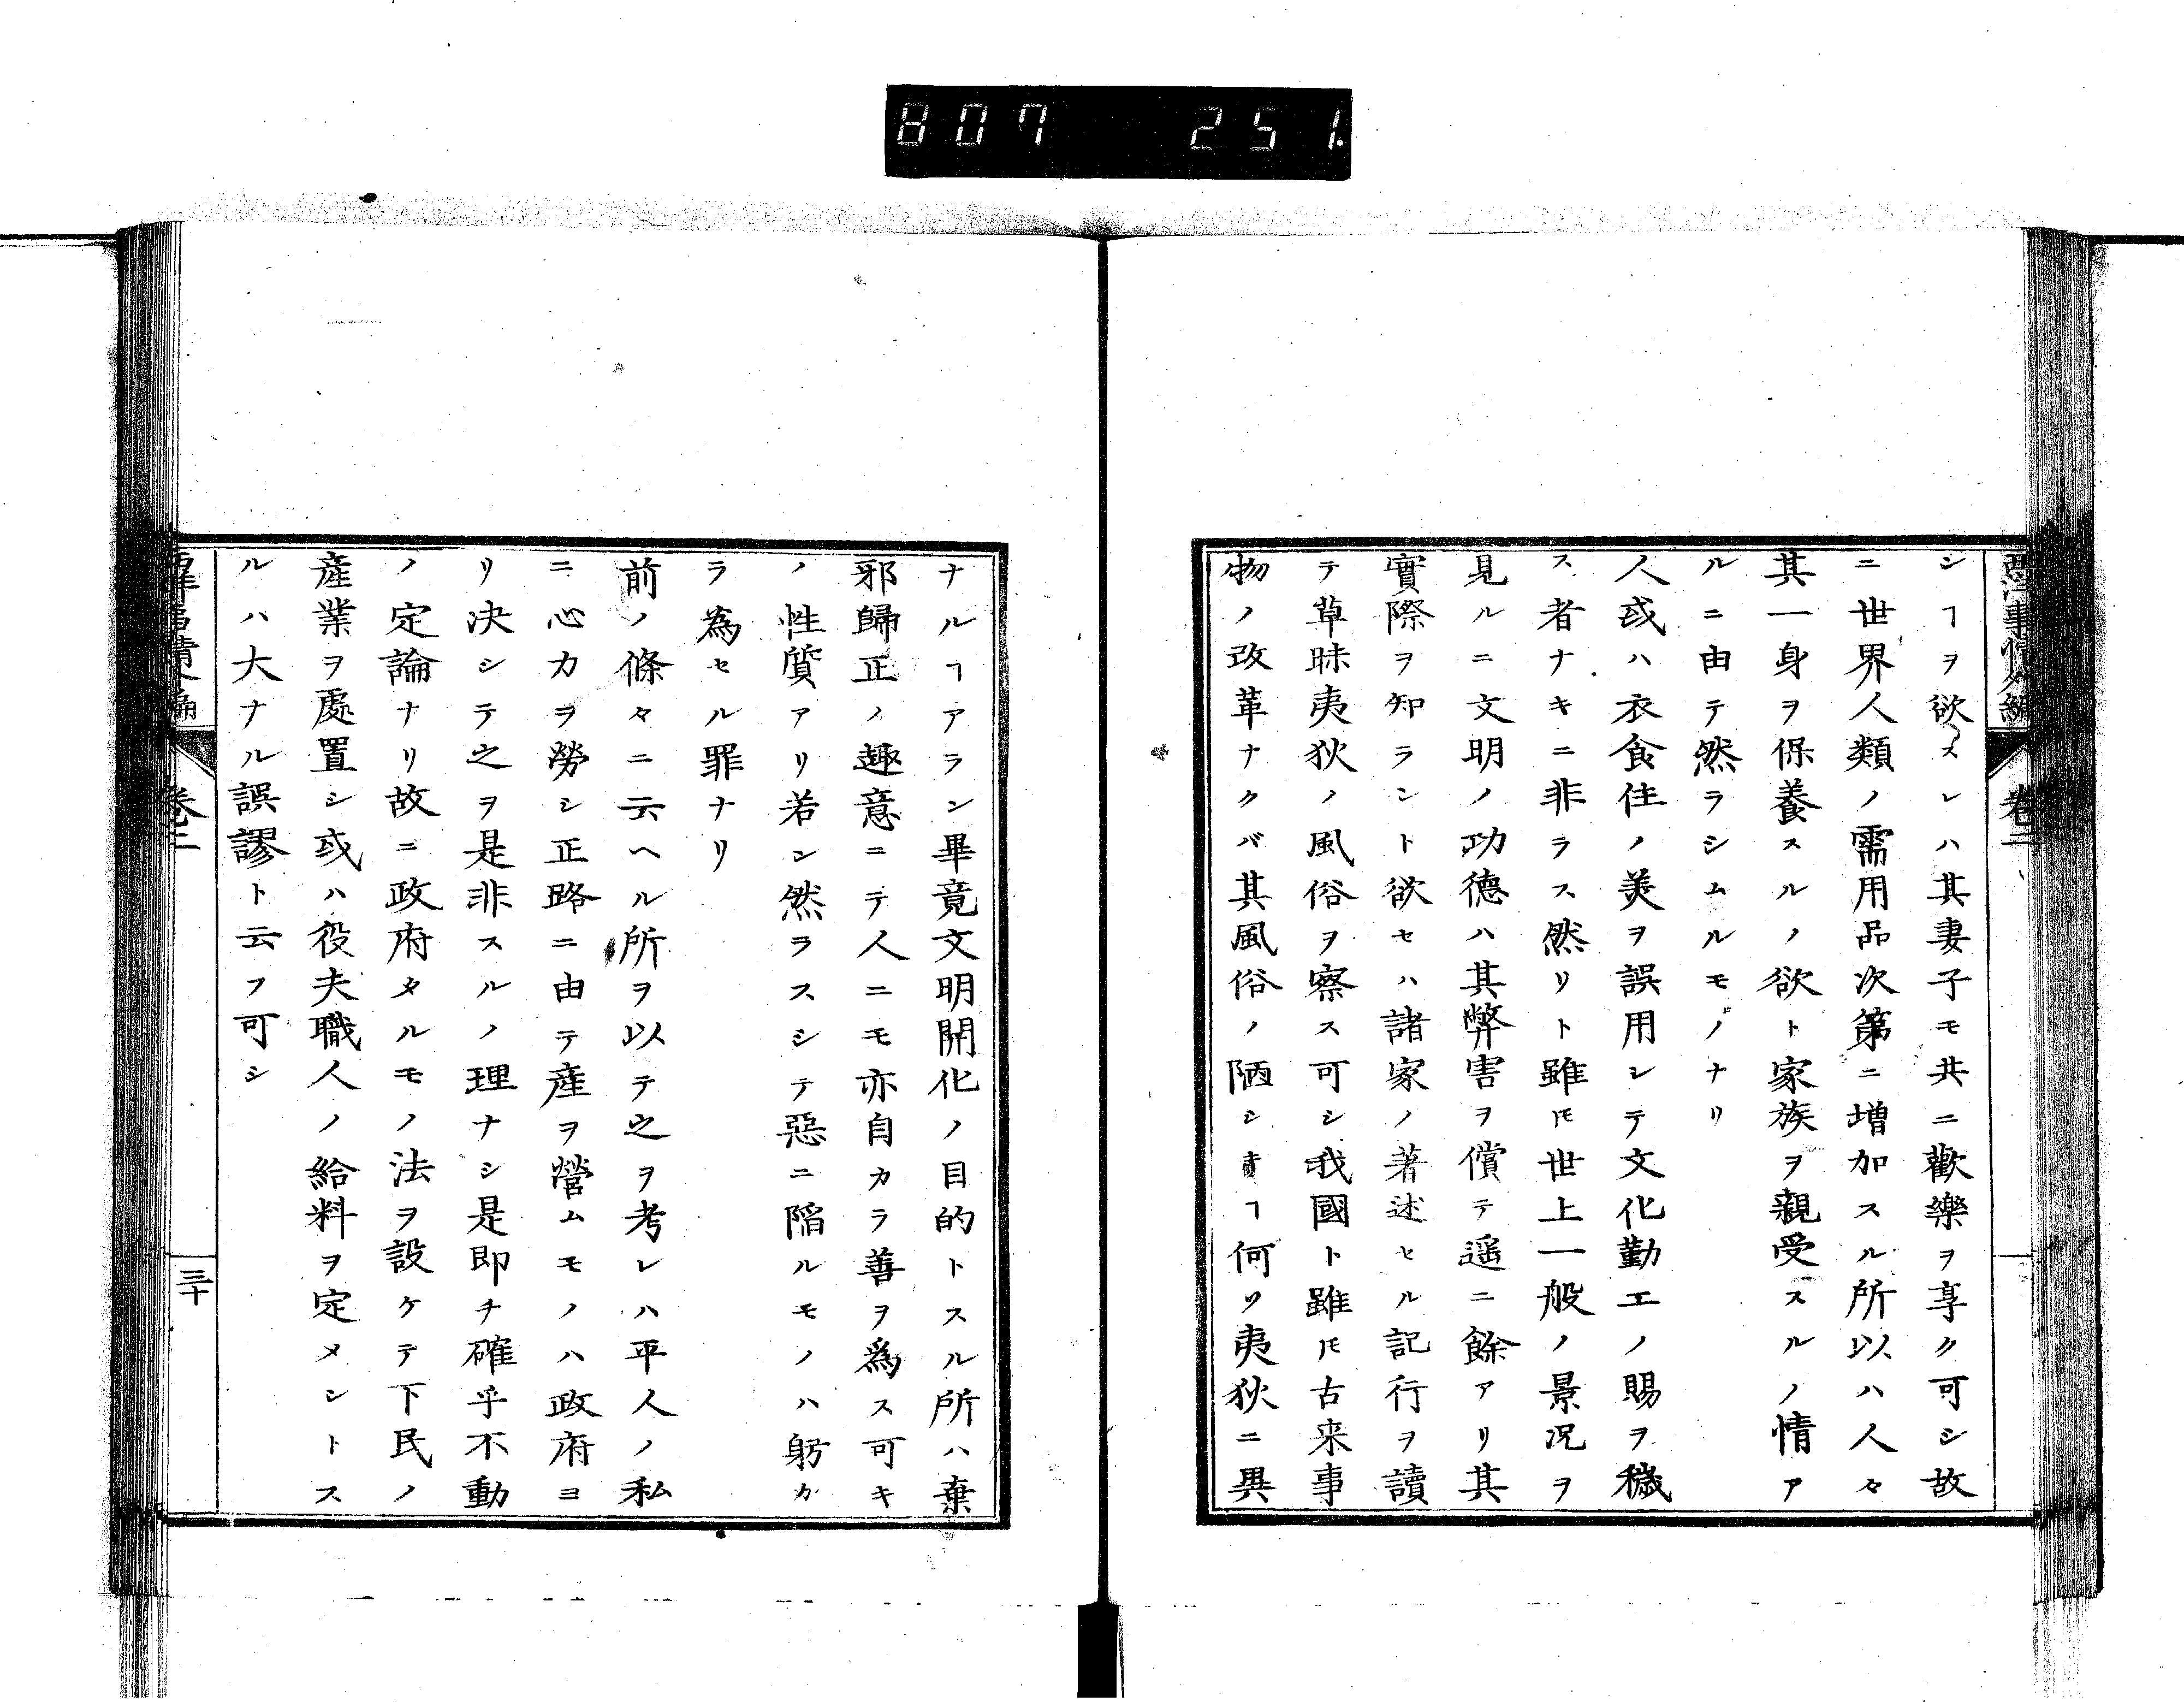 807 251.
西洋事情外編 卷二
シヿヲ欲スレハ其妻子モ共ニ歡樂ヲ享ク可シ故
ニ世界人類ノ需用品次第ニ増加スル所以ハ人々
其一身ヲ保養スルノ欲ト家族ヲ親受スルノ情ア
ルニ由テ然ラシムルモノナリ
人或ハ衣食住ノ美ヲ誤用シテ文化勤工ノ賜ヲ穢
ス者ナキニ非ラス然リト雖𪜈世上一般ノ景况ヲ
見ルニ文明ノ功德ハ其弊害ヲ償テ遥ニ餘アリ其
實際ヲ知ラント欲セハ諸家ノ著述セル記行ヲ讀
テ草昧夷狄ノ風俗ヲ察ス可シ我國ト雖𪜈古来事
物ノ改革ナクバ其風俗ノ陋シキヿ何ソ夷狄ニ異
ナルヿアラン畢竟文明開化ノ目的トスル所ハ棄
邪歸正ノ趣意ニテ人ニモ亦自カラ善ヲ爲ス可キ
ノ性質アリ若シ然ラスシテ惡ニ陷ルモノハ躬カ
ラ為セル罪ナリ
前ノ條々ニ云ヘル所ヲ以テ之ヲ考レハ平人ノ私
ニ心力ヲ勞シ正路ニ由テ産ヲ營ムモノハ政府ヨ
リ决シテ之ヲ是非スルノ理ナシ是即チ確乎不動
ノ定論ナリ故ニ政府タルモノノ法ヲ設ケテ下民ノ
産業ヲ處置シ或ハ役夫職人ノ給料ヲ定メントス
ルハ大ナル誤謬ト云フ可シ
西洋事情外編 卷二 三十